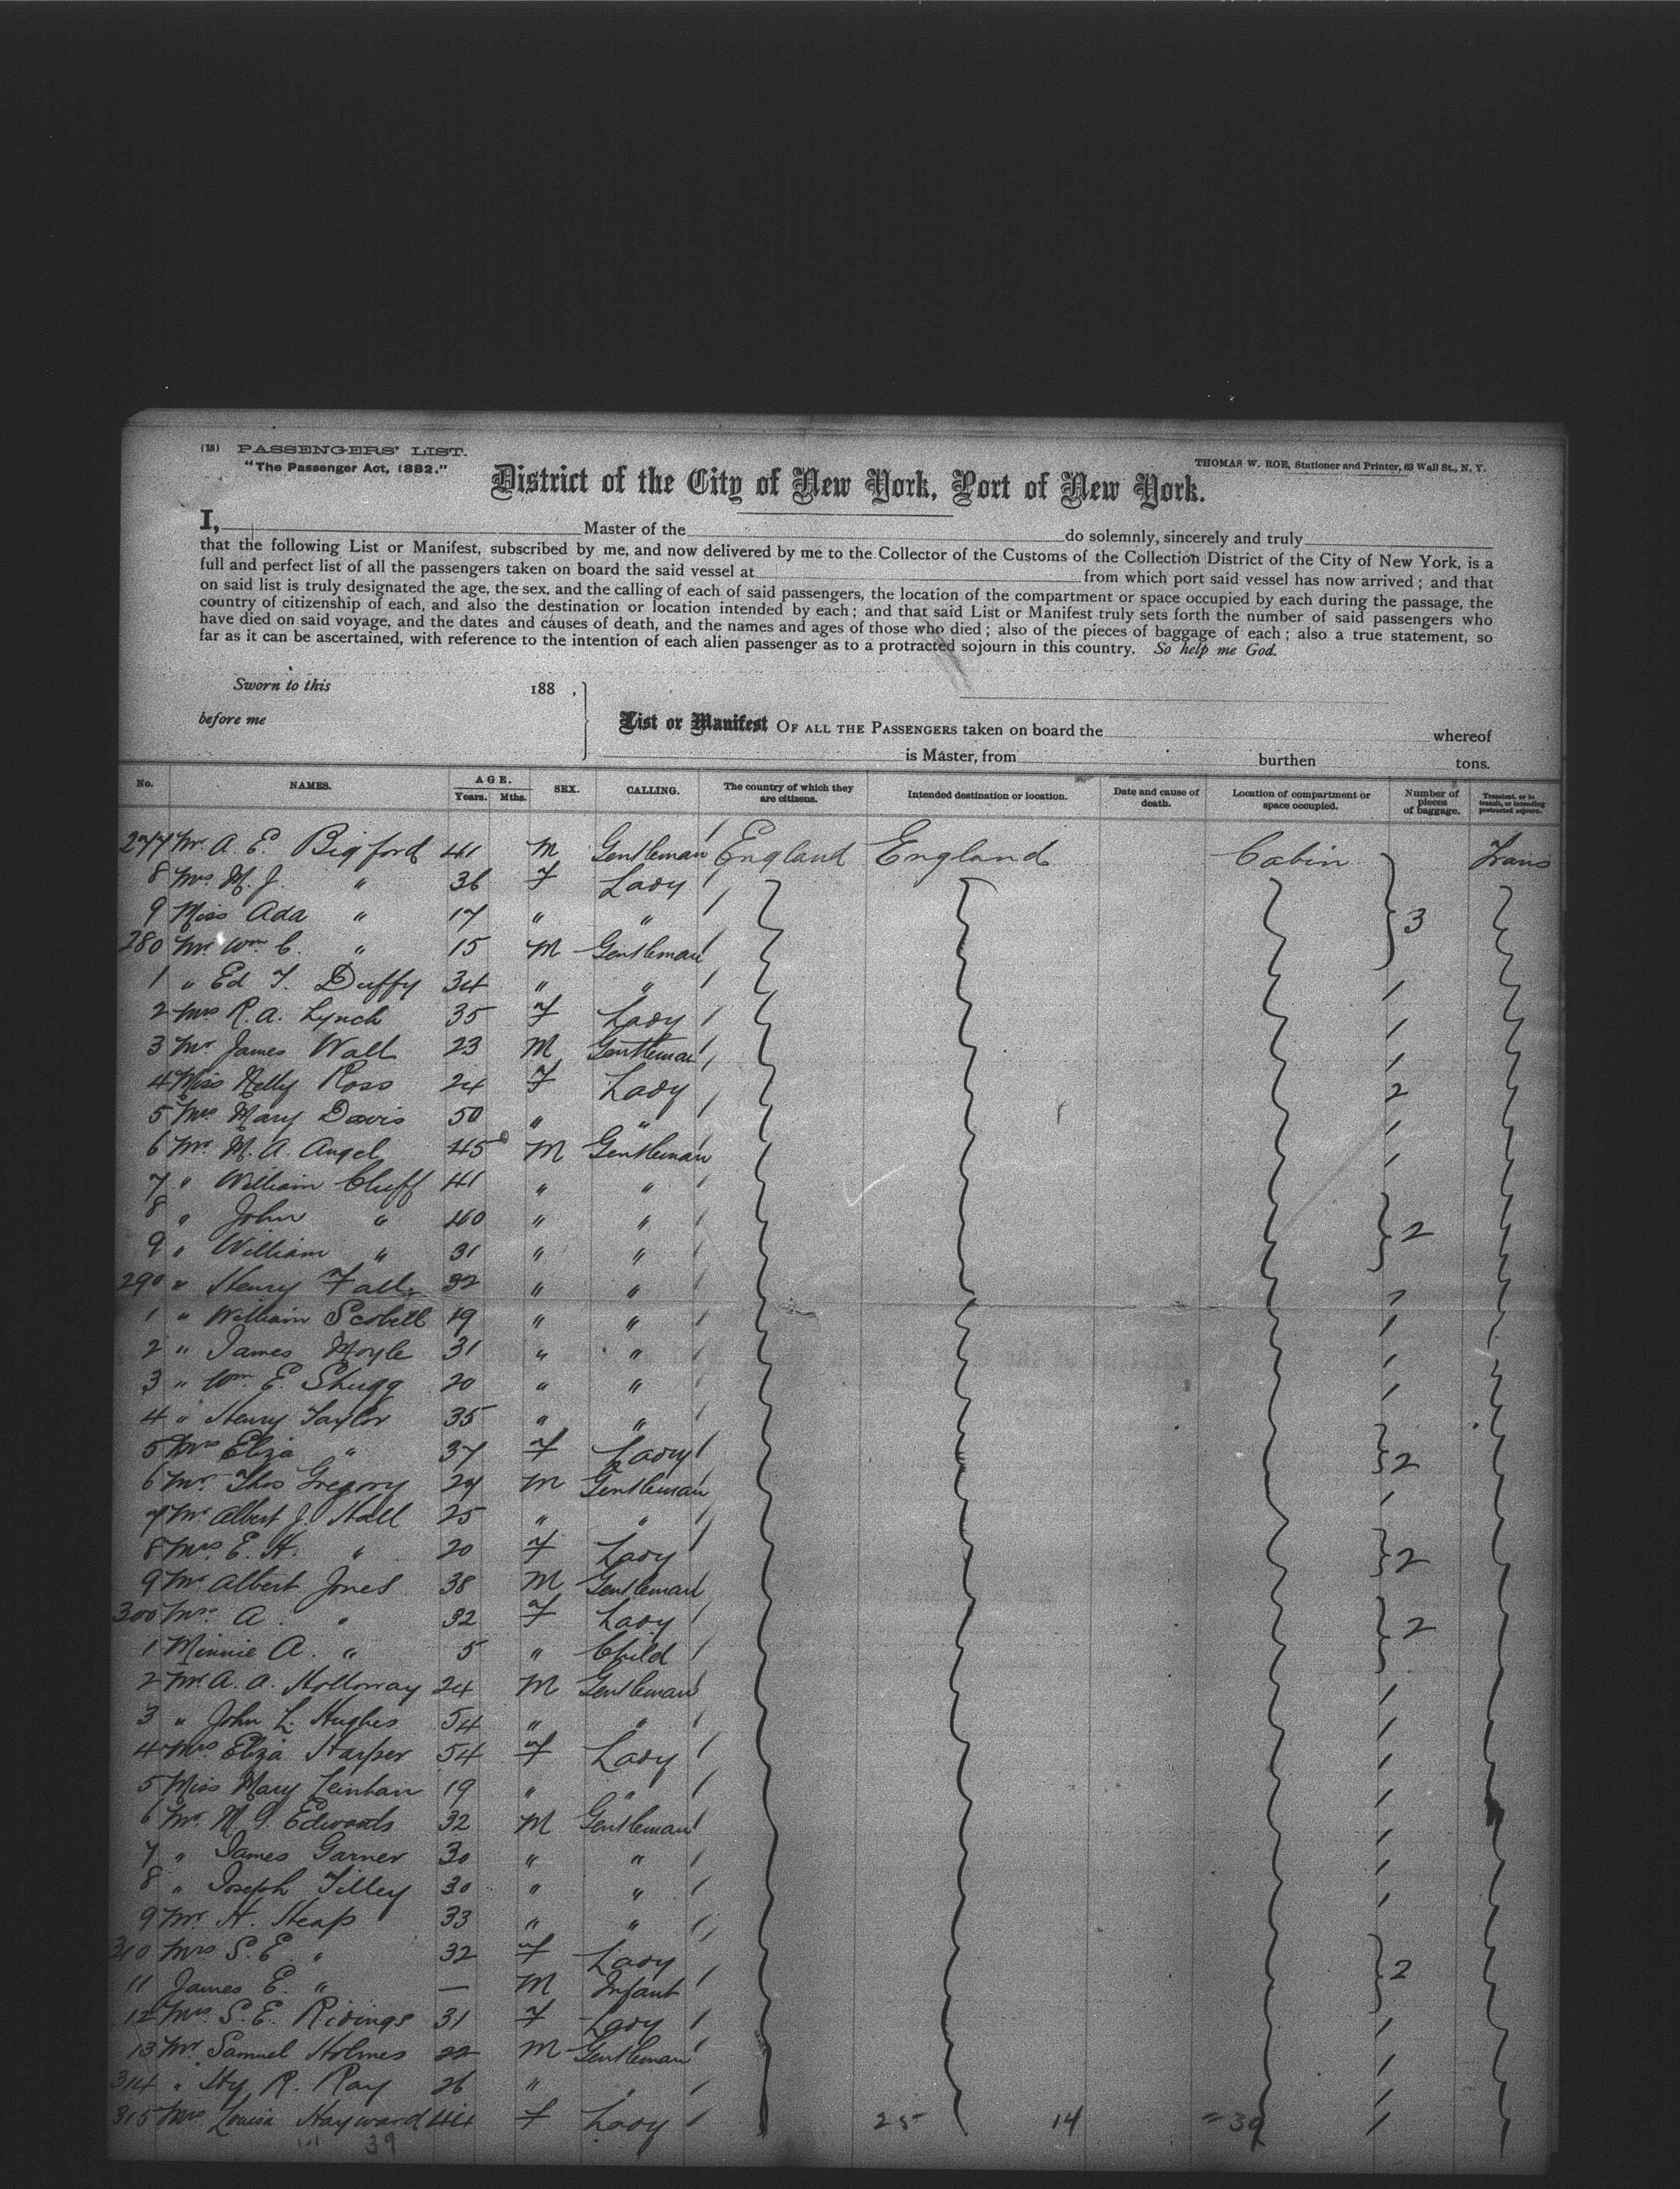 (18) PASSENGERS' LIST.
"The Passenger Act, 1882."
THOMAS W. ROE, Stationer and Printer, 63 Wall St., N. Y.
District of the City of New York, Port of New York.
I, Master of the do solemnly, sincerely and truly
that the following List or Manifest, subscribed by me, and now delivered by me to the Collector of the Customs of the Collection District of the City of New York, is a
full and perfect list of all the passengers taken on board the said vessel at from which port said vessel has now arrived; and that
on said list is truly designated the age, the sex, and the calling of each of said passengers, the location of the compartment or space occupied by each during the passage, the
country of citizenship of each, and also the destination or location intended by each; and that said List or Manifest truly sets forth the number of said passengers who
have died on said voyage, and the dates and causes of death, and the names and ages of those who died; also of the pieces of baggage of each; also a true statement, so
far as it can be ascertained, with reference to the intention of each alien passenger as to a protracted sojourn in this country. So help me God.
Sworn to this 188 ,
before me
List or Manifest OF ALL THE PASSENGERS taken on board the whereof
is Master, from burthen tons.
No. NAMES. AGE. Years. Mths. SEX. CALLING. The country of which they are citizens. Intended destination or location. Date and cause of death. Location of compartment or space occupied. Number of pieces of baggage. Transient, or in transit, or intending protracted sojourn.
277 Mr. A. E. Bigford 41 M Gentleman England England Cabin Trans
8 Mrs. M. J. " 36 F Lady
9 Miss Ada " 17 " " 3
280 Mr. Wm. C. " 15 M Gentleman
1 " Ed T. Duffy 34 " " 1
2 Mrs R. A. Lynch 35 F Lady 1
3 Mr. James Wall 23 M Gentleman 1
4 Miss Nelly Ross 24 F Lady 2
5 Mrs Mary Davis 50 " " 1
6 Mr. M. A. Angel 45 M Gentleman 1
7 " William Cluff 41 " "
8 " John " 40 " " 2
9 " William " 31 " "
290 " Henry Fall 32 " "
1 " William Scobell 19 " " 1
2 " James Moyle 31 " " 1
3 " Wm. E. Shugg 20 " " 1
4 " Henry Taylor 35 " "
5 Mrs Eliza " 37 F Lady 2
6 Mr. Thos Gregory 27 M Gentleman 1
7 Mr Albert J. Hall 25 " "
8 Mrs. E. H. " 20 F Lady 2
9 Mr Albert Jones 38 M Gentleman
300 Mrs. A. " 32 F Lady 2
1 Minnie A. " 5 " Child
2 Mr. A. A. Holloway 24 M Gentleman 1
3 " John L. Hughes 54 " " 1
4 Mrs. Eliza Harper 54 F Lady 1
5 Miss Mary Leinhan 19 " " 1
6 Mr. M. G. Edwards 32 M Gentleman 1
7 " James Garner 30 " " 1
8 " Joseph Tilley 30 " " 1
9 Mr. H. Heap 33 " "
310 Mrs S. E. " 32 F Lady 2
11 James E. " — M Infant
12 Mrs. S. E. Ridings 31 F Lady 1
13 Mr Samuel Holmes 22 M Gentleman 1
314 " Hy R. Ray 26 " " 1
315 Mrs Louisa Hayward 44 F Lady 25 14 = 39 1
39